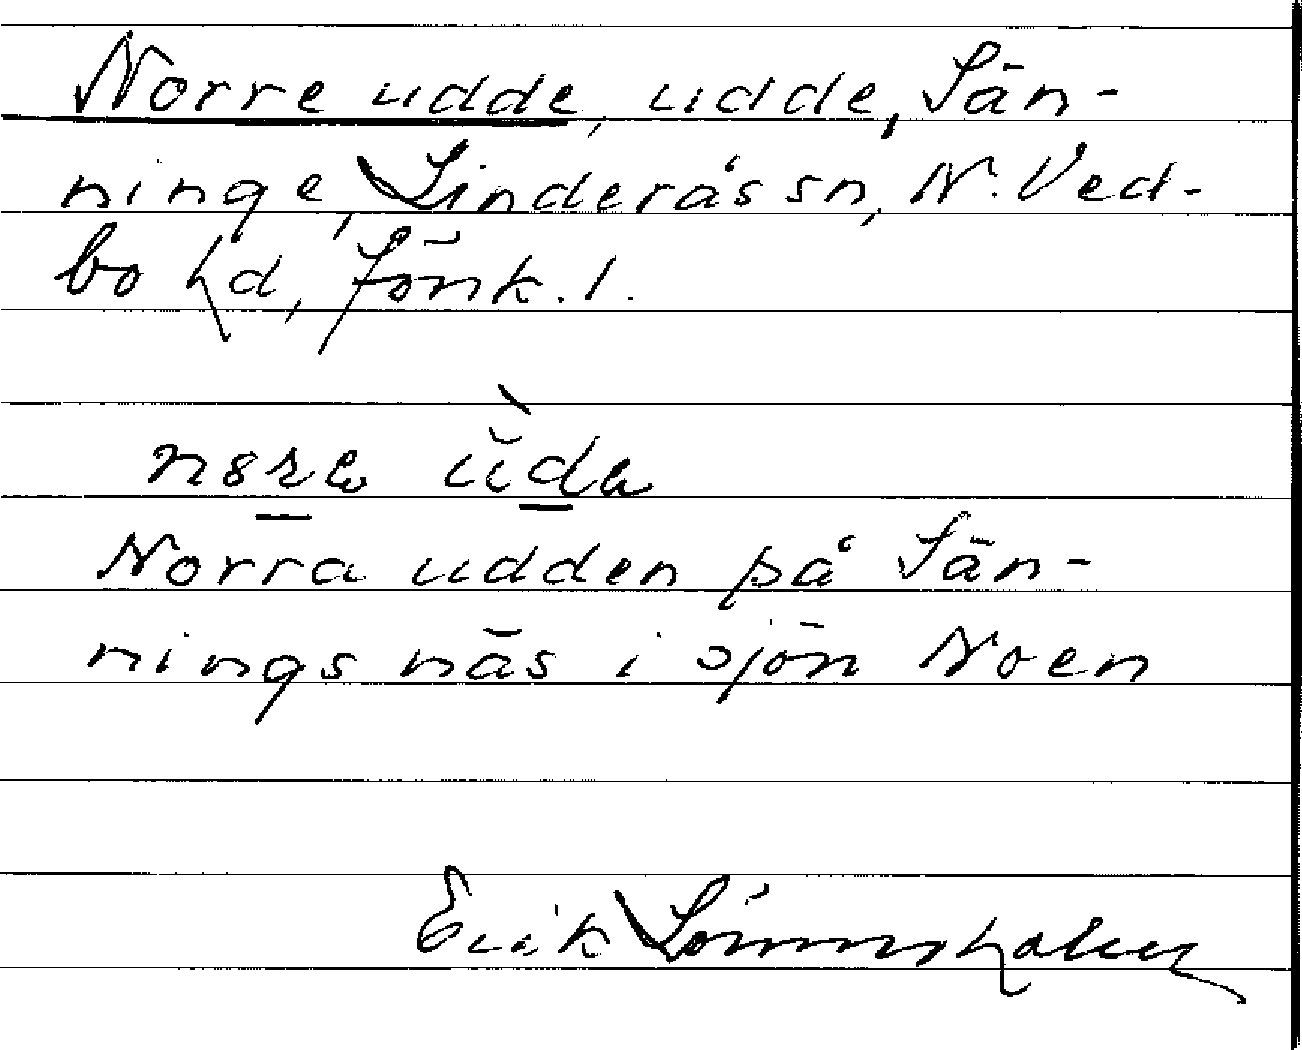 Norre udde, udde, Sän-
ninge, Linderås sn, N. Ved-
bo hd, Jönk. l.
Norra udden på Sän-
nings näs i sjön Noen
Erik